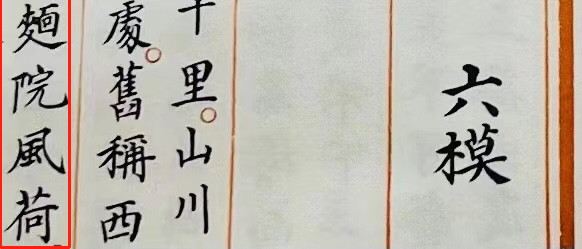 六模
里。山川
處。舊稱西
麵院風荷